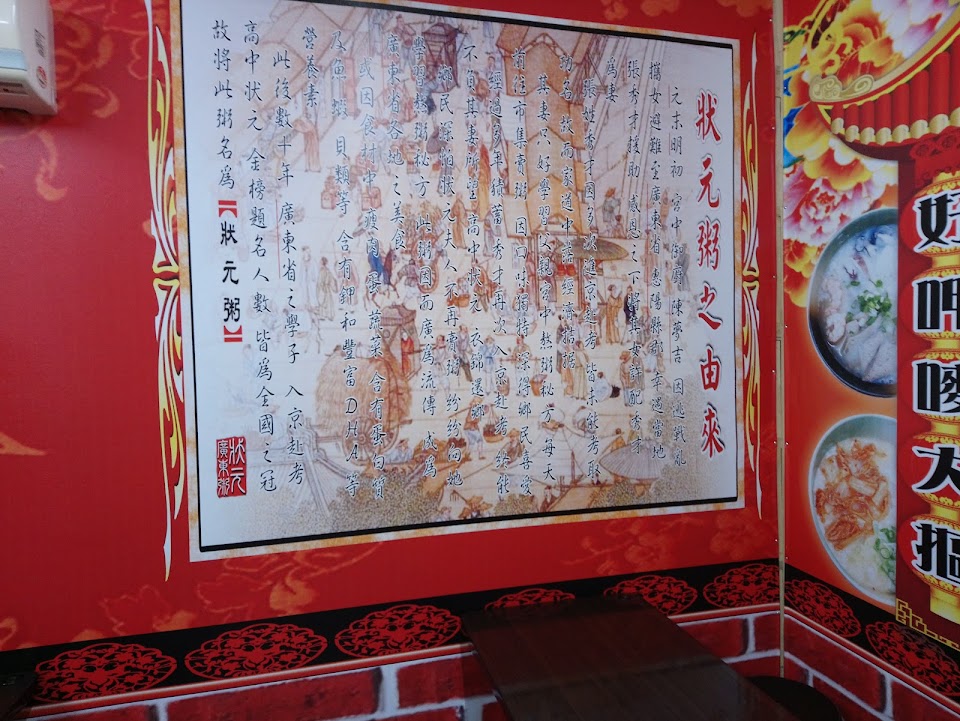 狀元粥之由來
元末明初 宮中御廚 陳夢吉 因逃戰亂
攜女避難至廣東省惠陽縣郡 幸遇當地
張秀才援助 感恩之下將其女許配秀才
為妻
張姓秀才因多次進京赴考 皆未能考取
功名 故而家道中落經濟拮据
其妻只好學習父親宮中熬粥秘方每天
前往市集賣粥 因口味獨特 深得鄉民喜愛
經過多年積蓄秀才再次入京赴考 終能
不負其妻願望高中狀元 衣錦還鄉
鄉民深怕狀元夫人不再賣粥 紛紛向她
學習熬粥秘方 此粥因而廣為流傳 成為
廣東省各地之美食
或因食材中瘦肉 蛋 蔬菜 含有蛋白質
及魚 蝦 貝類等 含有鉀和豐富DHA等
營養素
此後數十年 廣東省之學子 入京赴考
高中狀元 金榜題名人數 皆為全國之冠
故將此粥名為【狀元粥】
狀元
廣東粥
好呷嘜大摳